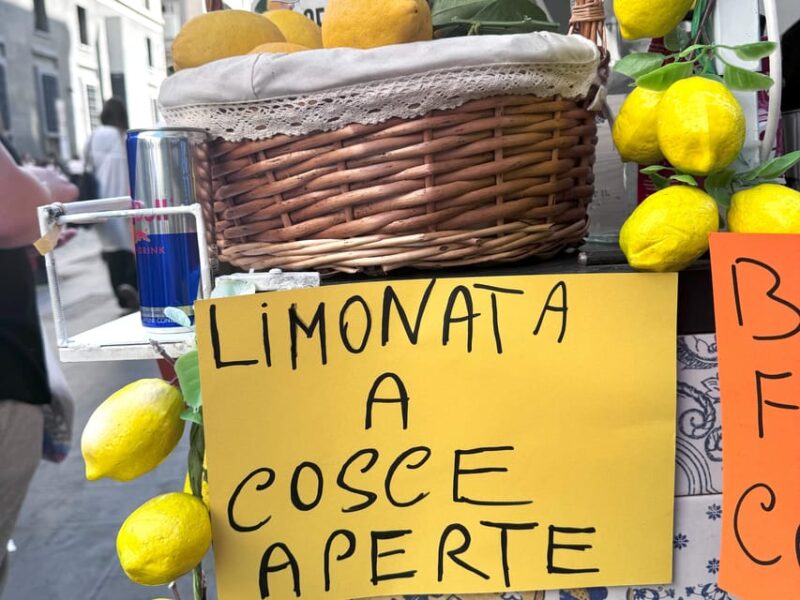 LiMONATA
A
COSCE
APERTE
B
F
C